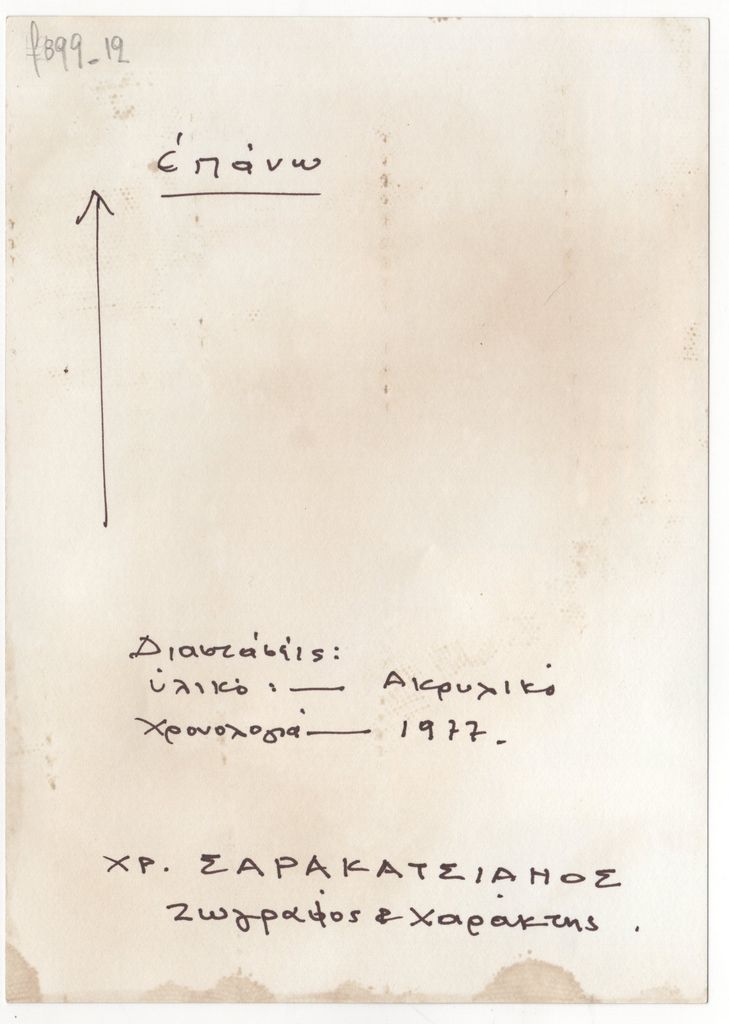 f899-12
ἐπάνω
Διαστάσεις:
ὑλικό : — Ακρυλικό
Χρονολογία — 1977.
ΧΡ. ΣΑΡΑΚΑΤΣΙΑΝΟΣ
Ζωγράφος & Χαράκτης.